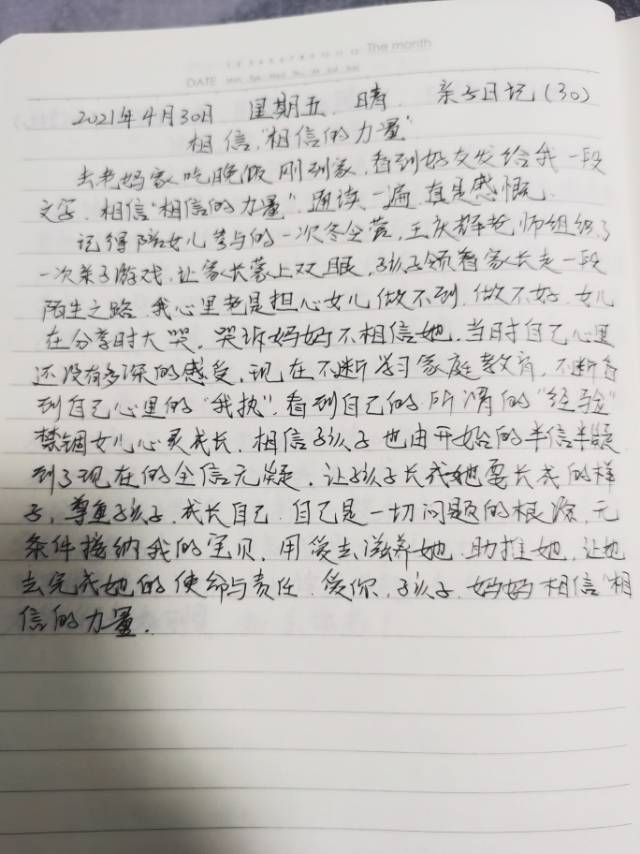 The month
DATE Mon Tue Wed Thu Fri Sat Sun
2021年4月30日 星期五 晴 亲子日记(30)
相信“相信的力量”
去老妈家吃晚饭刚到家,看到好友发给我一段
文字.相信“相信的力量”.通读一遍.直是感慨.
记得陪女儿参与的一次冬令营,王庆辉老师组织了
一次亲子游戏,让家长蒙上双眼,孩子领着家长走一段
陌生之路.我心里老是担心女儿做不到,做不好.女儿
在分享时大哭,哭诉妈妈不相信她,当时自己心里
还没有多深的感受,现在不断学习家庭教育,不断看
到自己心里的“我执”,看到自己的所谓的“经验”
禁锢女儿心灵成长,相信孩子也由开始的半信半疑
到了现在的全信无疑,让孩子长成她要长成的样
子,尊重孩子,成长自己.自己是一切问题的根源,无
条件接纳我的宝贝.用爱去滋养她.助推她,让她
去完成她的使命与责任.爱你,孩子.妈妈相信“相
信的力量.